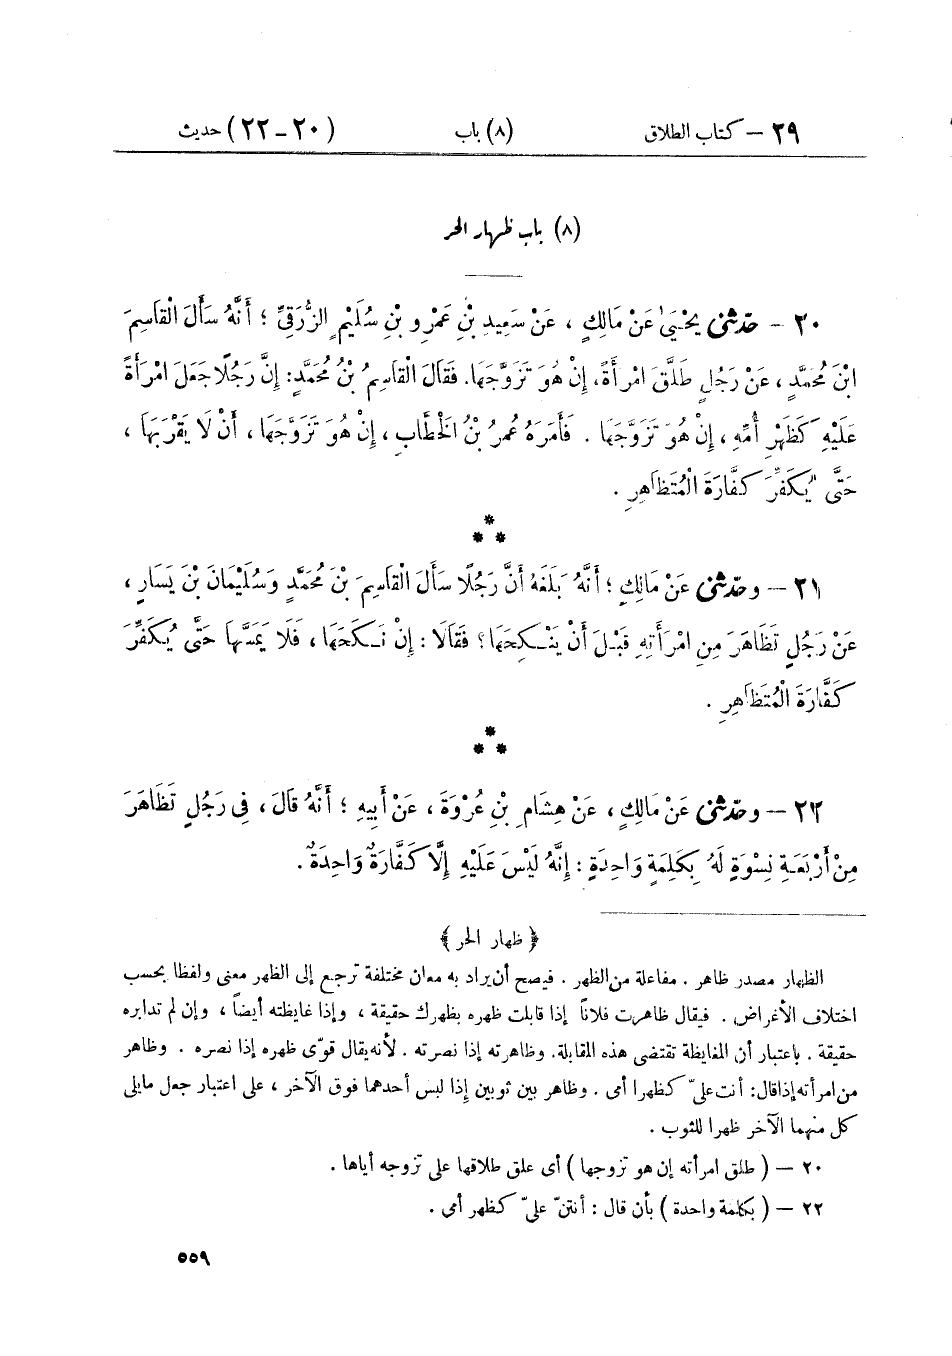 ٢٩ – كتاب الطلاق (٨) باب (٢٠ – ٢٢) حديث
(٨) باب ظهار الحر
٢٠ – حدّثنى يَحْيَىٰ عَنْ مَالِكٍ ، عَنْ سَعِيدِ بْنِ عَمْرِو بْنِ سُلَيْمٍ الزُّرَقِىِّ ؛ أَنَّهُ سَأَلَ الْقَاسِمَ
ابْنَ مُحَمَّدٍ ، عَنْ رَجُلٍ طَلَّقَ امْرَأَةً، إِنْ هُوَ تَزَوَّجَهَا. فَقَالَ الْقَاسِمُ بْنُ مُحَمَّدٍ: إِنَّ رَجُلًا جَعَلَ امْرَأَةً
عَلَيْهِ كَظَهْرِ أُمِّهِ ، إِنْ هُوَ تَزَوَّجَهَا . فَأَمَرَهُ عُمَرُ بْنُ الْخَطَّابِ ، إِنْ هُوَ تَزَوَّجَهَا ، أَنْ لَا يَقْرَبَهَا ،
حَتَّى يُكَفِّرَ كَفَّارَةَ الْمُتَظَاهِرِ .
*
* *
٢١ – وحدّثنى عَنْ مَالِكٍ ؛ أَنَّهُ بَلَغَهُ أَنَّ رَجُلًا سَأَلَ الْقَاسِمَ بْنَ مُحَمَّدٍ وَسُلَيْمَانَ بْنَ يَسَارٍ ،
عَنْ رَجُلٍ تَظَاهَرَ مِنِ امْرَأَتِهِ قَبْلَ أَنْ يَنْكِحَهَا؟ فَقَالَا : إِنْ نَكَحَهَا ، فَلَا يَمَسَّهَا حَتَّى يُكَفِّرَ
كَفَّارَةَ الْمُتَظَاهِرِ .
*
* *
٢٢ – وحدّثنى عَنْ مَالِكٍ ، عَنْ هِشَامِ بْنِ عُرْوَةَ ، عَنْ أَبِيهِ ؛ أَنَّهُ قَالَ ، فِى رَجُلٍ تَظَاهَرَ
مِنْ أَرْبَعَةِ نِسْوَةٍ لَهُ بِكَلِمَةٍ وَاحِدَةٍ : إِنَّهُ لَيْسَ عَلَيْهِ إِلَّا كَفَّارَةٌ وَاحِدَةٌ .
﴿ ظهار الحر ﴾
الظهار مصدر ظاهر . مفاعلة من الظهر . فيصح أن يراد به معان مختلفة ترجع إلى الظهر معنى ولفظا بحسب
اختلاف الأغراض . فيقال ظاهرت فلاناً إذا قابلت ظهره بظهرك حقيقة ، وإذا غايظته أيضاً ، وإن لم تدابره
حقيقة . باعتبار أن المغايظة تقتضى هذه المقابلة. وظاهرته إذا نصرته . لأنه يقال قوّى ظهره إذا نصره . وظاهر
من امرأته إذا قال: أنت علىّ كظهر أمى . وظاهر بين ثوبين إذا لبس أحدهما فوق الآخر ، على اعتبار جعل مايلى
كل منهما الآخر ظهرا للثوب .
٢٠ – ( طلق امرأته إن هو تزوجها ) أى علق طلاقها على تزوجه أياها .
٢٢ – ( بكلمة واحدة ) بأن قال : أنتنّ علىّ كظهر أمى .
٥٥٩